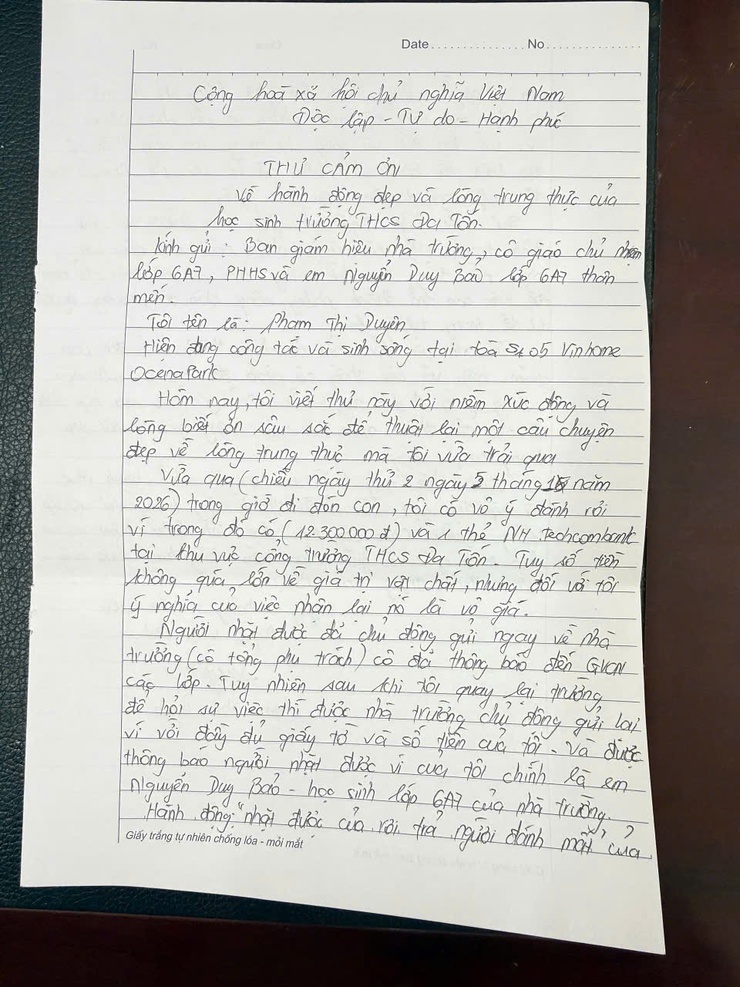 Date.................No................
Cộng hoà xã hội chủ nghĩa Việt Nam
Độc lập - Tự do - Hạnh phúc
THƯ CẢM ƠN
Về hành động đẹp và lòng trung thực của
học sinh trường THCS Đa Tốn.
Kính gửi: Ban giám hiệu nhà trường, cô giáo chủ nhiệm
lớp 6A7, PHHS và em Nguyễn Duy Bảo lớp 6A7 thân
mến.
Tôi tên là: Phạm Thị Duyên
Hiện đang công tác và sinh sống tại toà S1.05 Vinhome
OcenaPark
Hôm nay, tôi viết thư này với niềm xúc động và
lòng biết ơn sâu sắc để thuật lại một câu chuyện
đẹp về lòng trung thực mà tôi vừa trải qua
Vừa qua (chiều ngày thứ 2 ngày 5 tháng năm
2026) trong giờ đi đón con, tôi có vô ý đánh rơi
ví trong đó có (12.300.000 đ) và 1 thẻ NH. Techcombank
tại khu vực cổng trường THCS Đa Tốn. Tuy số tiền
không quá lớn về giá trị vật chất, nhưng đối với tôi
ý nghĩa của việc nhận lại nó là vô giá.
Người nhặt được đã chủ động gửi ngay về nhà
trường (cô tổng phụ trách) cô đã thông báo đến GVCN
các lớp. Tuy nhiên sau khi tôi quay lại trường
để hỏi sự việc thì được nhà trường chủ động gửi lại
ví với đầy đủ giấy tờ và số tiền của tôi - Và được
thông báo người nhặt được ví của tôi chính là em
Nguyễn Duy Bảo - học sinh lớp 6A7 của nhà trường.
Hành động "nhặt được của rơi trả người đánh mất" của
Giấy trắng tự nhiên chống lóa - mỏi mắt